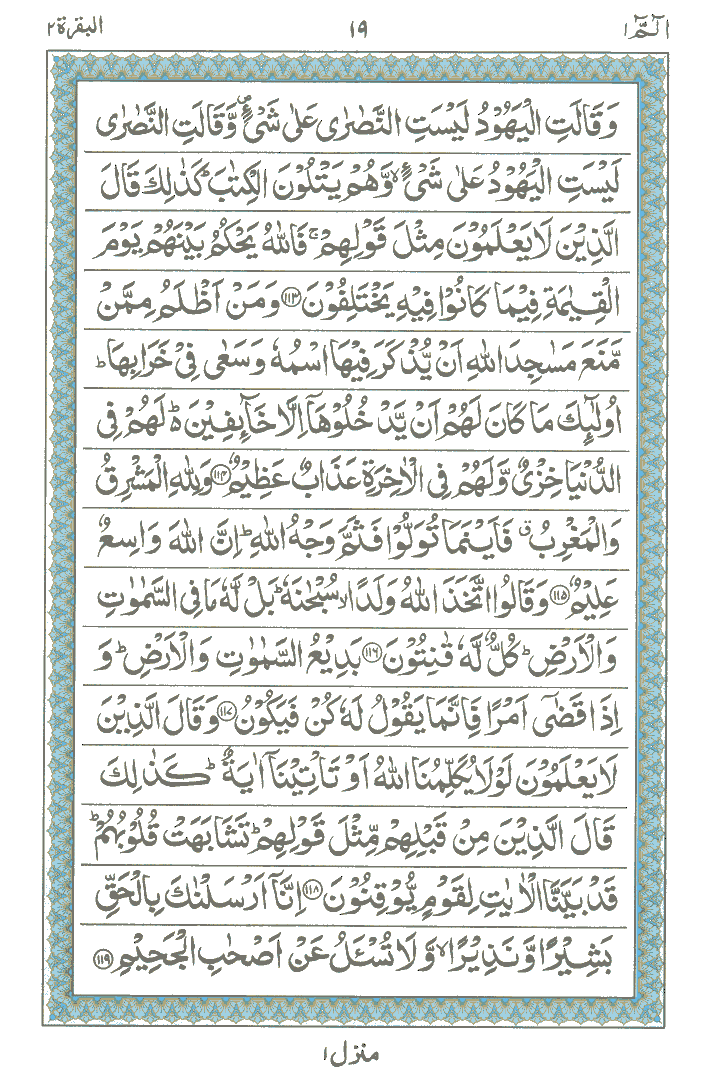 الٓمّٓ ١ ١٩ البقرة ٢
وَقَالَتِ الْيَهُوْدُ لَيْسَتِ النَّصٰرٰى عَلٰى شَىْءٍ ۪ وَّقَالَتِ النَّصٰرٰى
لَيْسَتِ الْيَهُوْدُ عَلٰى شَىْءٍ ۙ وَّهُمْ يَتْلُوْنَ الْكِتٰبَ ؕ كَذٰلِكَ قَالَ
الَّذِيْنَ لَا يَعْلَمُوْنَ مِثْلَ قَوْلِهِمْ ۚ فَاللّٰهُ يَحْكُمُ بَيْنَهُمْ يَوْمَ
الْقِيٰمَةِ فِيْمَا كَانُوْا فِيْهِ يَخْتَلِفُوْنَ ﴿۱۱۳﴾ وَمَنْ اَظْلَمُ مِمَّنْ
مَّنَعَ مَسٰجِدَ اللّٰهِ اَنْ يُّذْكَرَ فِيْهَا اسْمُهٗ وَسَعٰى فِىْ خَرَابِهَا ؕ
اُولٰٓئِكَ مَا كَانَ لَهُمْ اَنْ يَّدْخُلُوْهَاۤ اِلَّا خَآئِفِيْنَ ؕ۬ لَهُمْ فِى
الدُّنْيَا خِزْىٌ وَّلَهُمْ فِى الْاٰخِرَةِ عَذَابٌ عَظِيْمٌ ﴿۱۱۴﴾ وَلِلّٰهِ الْمَشْرِقُ
وَالْمَغْرِبُ ۗ فَاَيْنَمَا تُوَلُّوْا فَثَمَّ وَجْهُ اللّٰهِ ؕ اِنَّ اللّٰهَ وَاسِعٌ
عَلِيْمٌ ﴿۱۱۵﴾ وَقَالُوا اتَّخَذَ اللّٰهُ وَلَدًا ۙ سُبْحٰنَهٗ ؕ بَلْ لَّهٗ مَا فِى السَّمٰوٰتِ
وَالْاَرْضِ ؕ كُلٌّ لَّهٗ قٰنِتُوْنَ ﴿۱۱۶﴾ بَدِيْعُ السَّمٰوٰتِ وَالْاَرْضِ ؕ وَ
اِذَا قَضٰۤى اَمْرًا فَاِنَّمَا يَقُوْلُ لَهٗ كُنْ فَيَكُوْنُ ﴿۱۱۷﴾ وَقَالَ الَّذِيْنَ
لَا يَعْلَمُوْنَ لَوْلَا يُكَلِّمُنَا اللّٰهُ اَوْ تَاْتِيْنَاۤ اٰيَةٌ ؕ كَذٰلِكَ
قَالَ الَّذِيْنَ مِنْ قَبْلِهِمْ مِّثْلَ قَوْلِهِمْ ؕ تَشَابَهَتْ قُلُوْبُهُمْ ؕ
قَدْ بَيَّنَّا الْاٰيٰتِ لِقَوْمٍ يُّوْقِنُوْنَ ﴿۱۱۸﴾ اِنَّاۤ اَرْسَلْنٰكَ بِالْحَقِّ
بَشِيْرًا وَّنَذِيْرًا ۙ وَّلَا تُسْـَٔلُ عَنْ اَصْحٰبِ الْجَحِيْمِ ﴿۱۱۹﴾
منزل ١